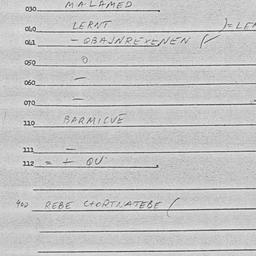 030 MALAMED
040 LERNT ) = LE
041 - OBAJNREXENEN (
050 0
060 -
070 -
110 BARMICVE
111 -
112 = + QU
400 REBE CHORTNATEBE (